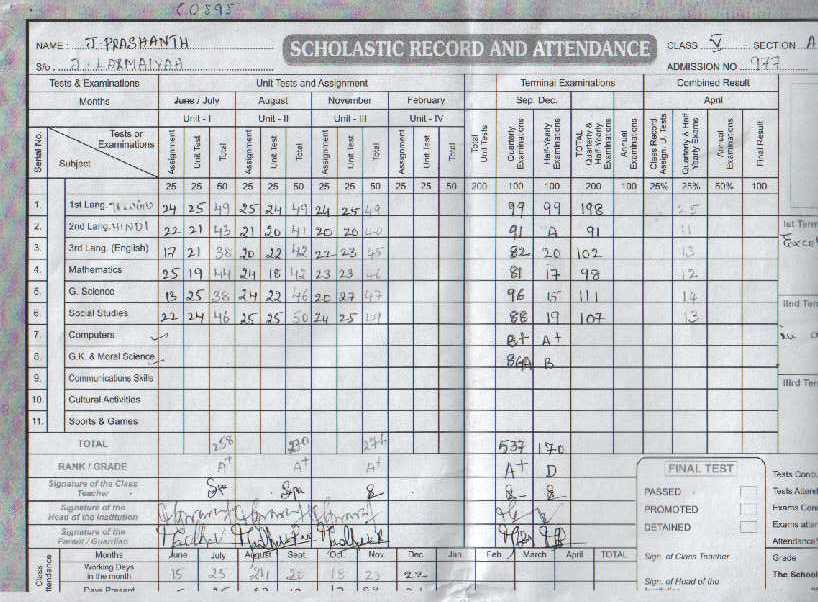 C0595
NAME : J. PRASHANTH SCHOLASTIC RECORD AND ATTENDANCE CLASS V SECTION A
S/o. J. LAXMAIYAA ADMISSION NO 977
Tests & Examinations Unit Tests and Assignment Terminal Examinations Combined Result
Months June / July August November February Sep. Dec. April
Unit - I Unit - II Unit - III Unit - IV
Serial No. Tests or Examinations Subject Assignment Unit Test Total Assignment Unit Test Total Assignment Unit Test Total Assignment Unit Test Total Total Unit Tests Quarterly Examinations Half-Yearly Examinations TOTAL Quarterly & Half-Yearly Examinations Annual Examinations Class Record Assign. U. Tests Quarterly & Half Yearly Exams Annual Examinations Final Result
25 25 50 25 25 50 25 25 50 25 25 50 200 100 100 200 100 25% 25% 50% 100
1. 1st Lang. TELUGU 24 25 49 25 24 49 24 25 49 99 99 198 25
2. 2nd Lang. HINDI 22 21 43 21 20 41 20 20 40 91 A 91 11
3. 3rd Lang. (English) 17 21 38 20 22 42 22 23 45 82 20 102 13
4. Mathematics 25 19 44 24 18 42 23 23 46 81 17 98 12
5. G. Science 13 25 38 24 22 46 20 27 47 96 15 111 14
6. Social Studies 22 24 46 25 25 50 24 25 49 88 19 107 13
7. Computers B+ A+
8. G.K. & Moral Science B
9. Communications Skills
10. Cultural Activities
11. Sports & Games
TOTAL 258 270 276 537 170
RANK / GRADE A+ A+ A+ A+ D
Signature of the Class Teacher
Signature of the Head of the Institution
Signature of the Parent / Guardian
FINAL TEST
PASSED
PROMOTED
DETAINED
Sign. of Class Teacher
Sign. of Head of the
Class
Months June July August Sept. Oct. Nov. Dec. Jan. Feb March April TOTAL
Working Days in the month 15 23 20 18 23 22
Days Present
Ist Term
IInd Term
IIIrd Term
Tests Cond
Tests Attend
Exams Con
Exams atten
Attendance
Grade
The School